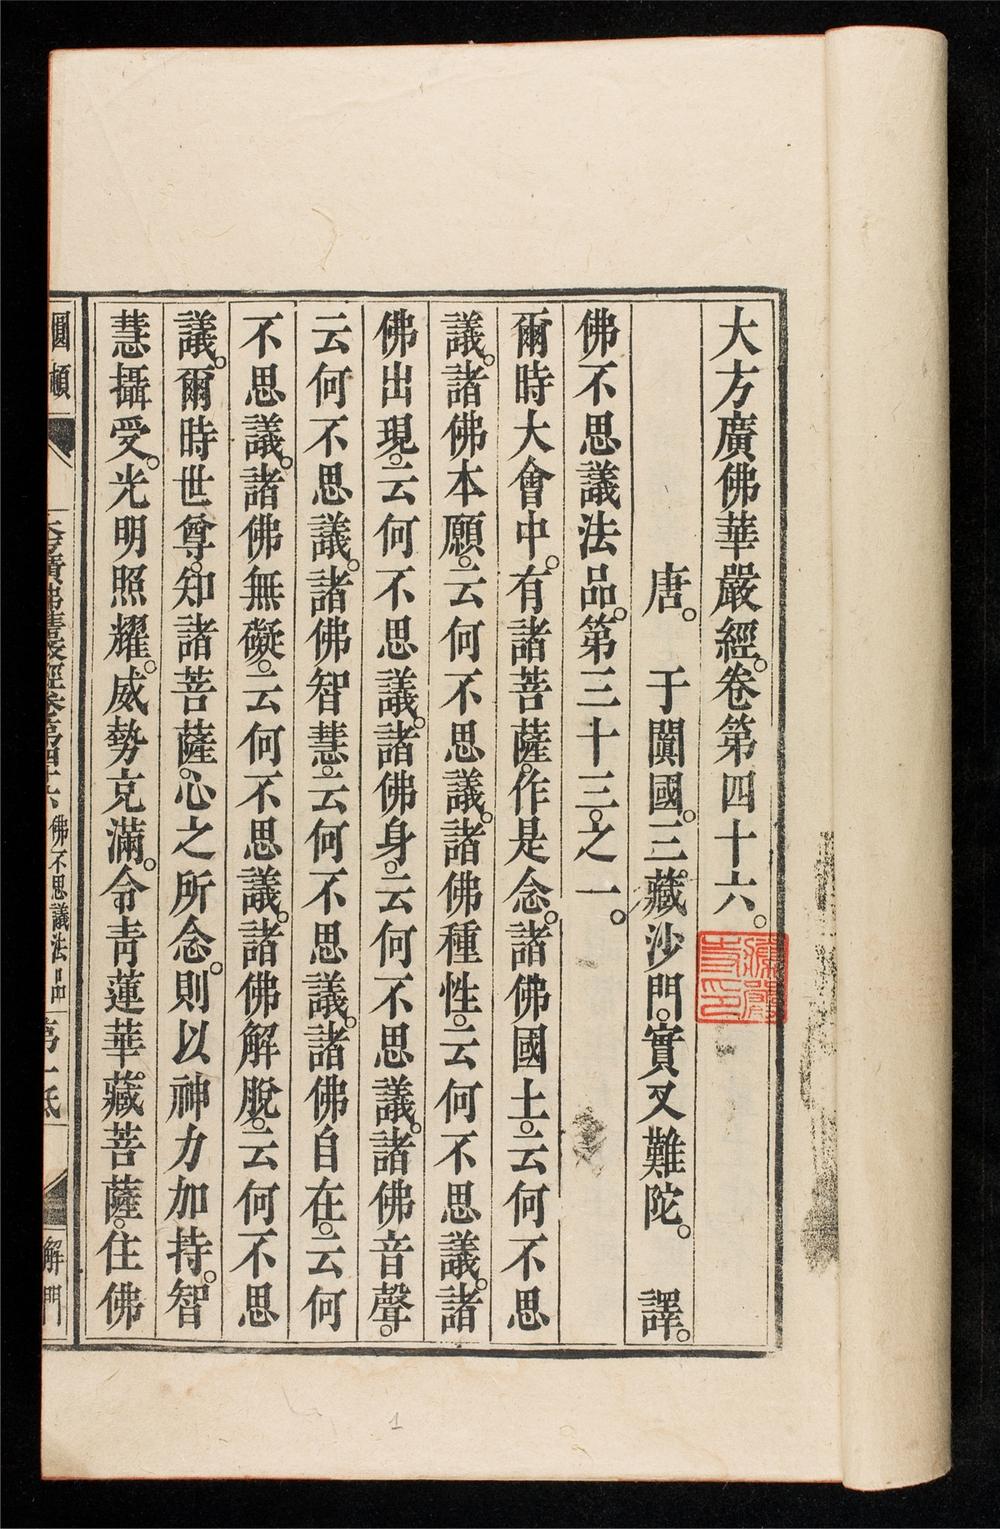 大方廣佛華嚴經。卷第四十六。
唐。于闐國。三藏沙門。實叉難陀。譯。
佛不思議法品。第三十三。之一。
爾時大會中。有諸菩薩。作是念。諸佛國土。云何不思
議。諸佛本願。云何不思議。諸佛種性。云何不思議。諸
佛出現。云何不思議。諸佛身。云何不思議。諸佛音聲。
云何不思議。諸佛智慧。云何不思議。諸佛自在。云何
不思議。諸佛無礙。云何不思議。諸佛解脫。云何不思
議。爾時世尊。知諸菩薩。心之所念。則以神力加持。智
慧攝受。光明照耀。威勢充滿。令青蓮華。藏菩薩。住佛
圓頓
大方廣佛華嚴經卷第四十六
佛不思議法品
第一紙
解門
1